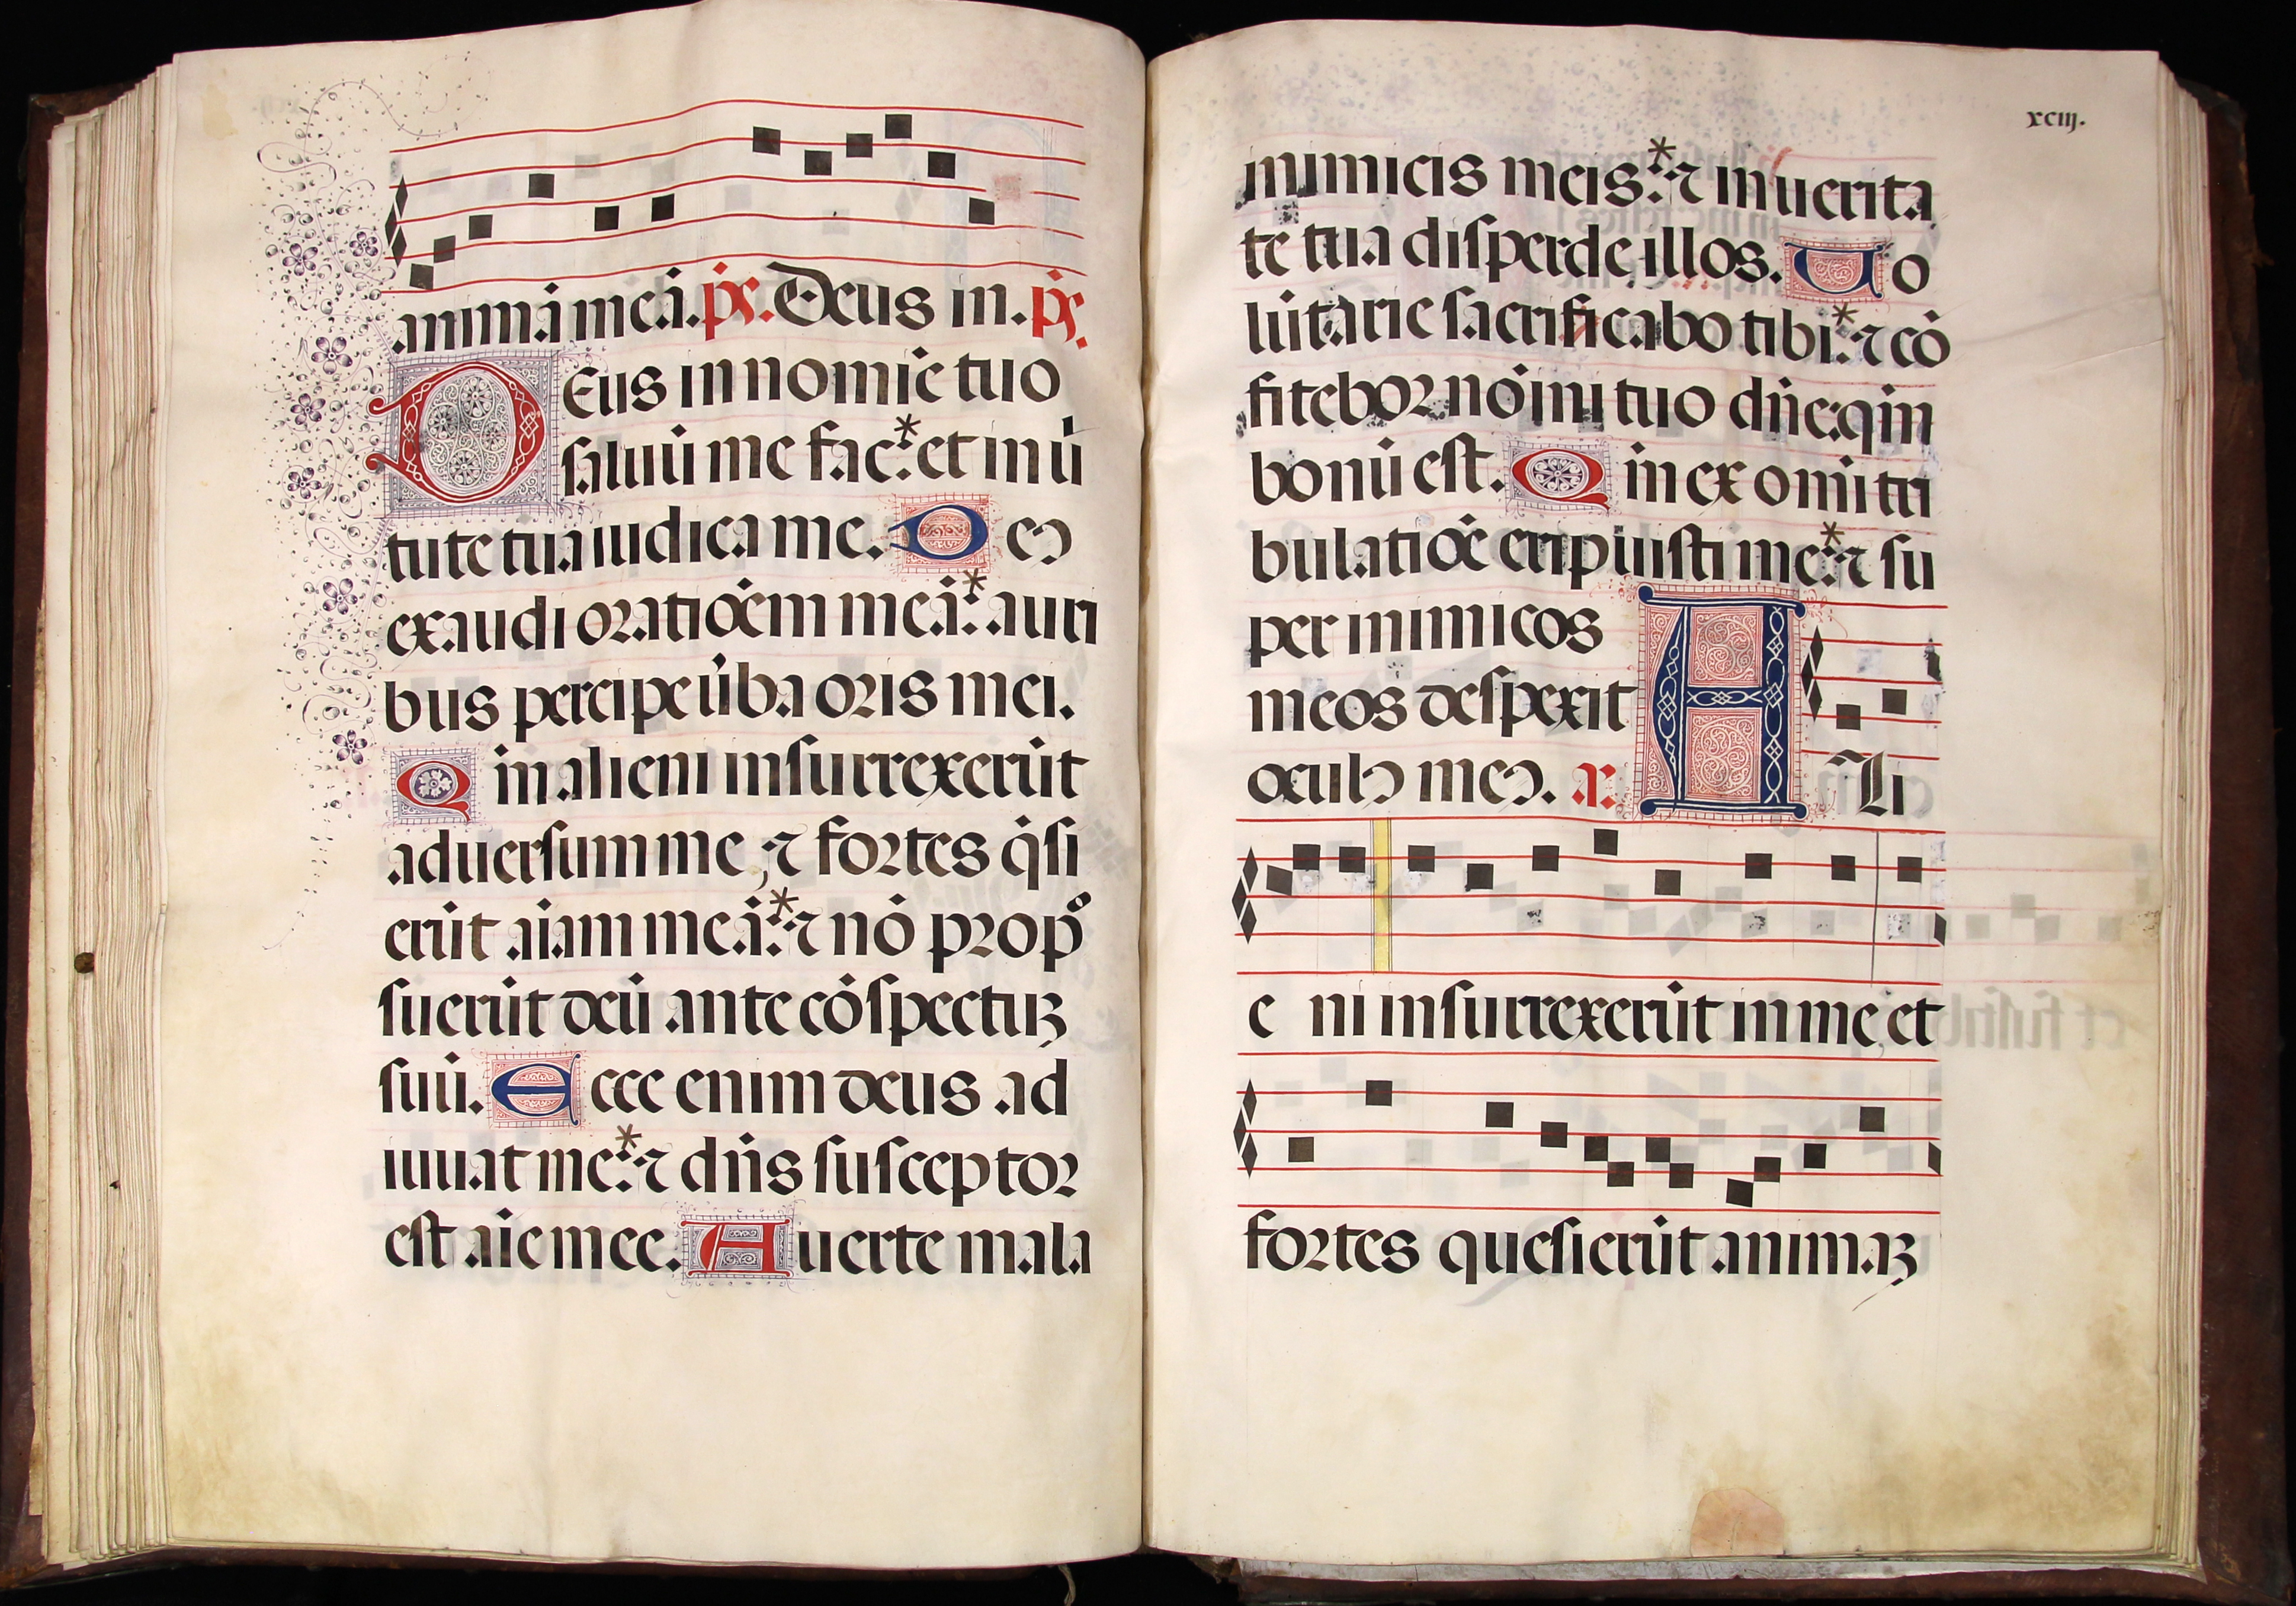 animā meā. ps̄. Deus in. ps̄.
DEus in nomīe tuo
saluū me fac: * et in ū
tute tua iudica me. Deꝰ
exaudi oratiōem meā: * auri
bus percipe ūba oris mei.
Qm̄ alieni insurrexerūt
aduersum me, ⁊ fortes q̄si
erūt aīam meā: * ⁊ nō prop
suerūt deū ante cōspectuꝫ
suū. Ecce enim deus ad
iuuat me: * ⁊ dn̄s susceptor
est aīe mee. Auerte mala
xciij.
inimicis meis: * ⁊ in uerita
te tua disperde illos. Uo
lūtarie sacrificabo tibi: * ⁊ cō
fitebor nōini tuo dn̄e: qm̄
bonū est. Qm̄ ex omi tri
bulatiōe eripuisti me: * ⁊ su
per inimicos
meos despexit
oculꝰ meꝰ. a: Ali
e ni insurrexerūt in me et
fortes quesierūt animaꝫ